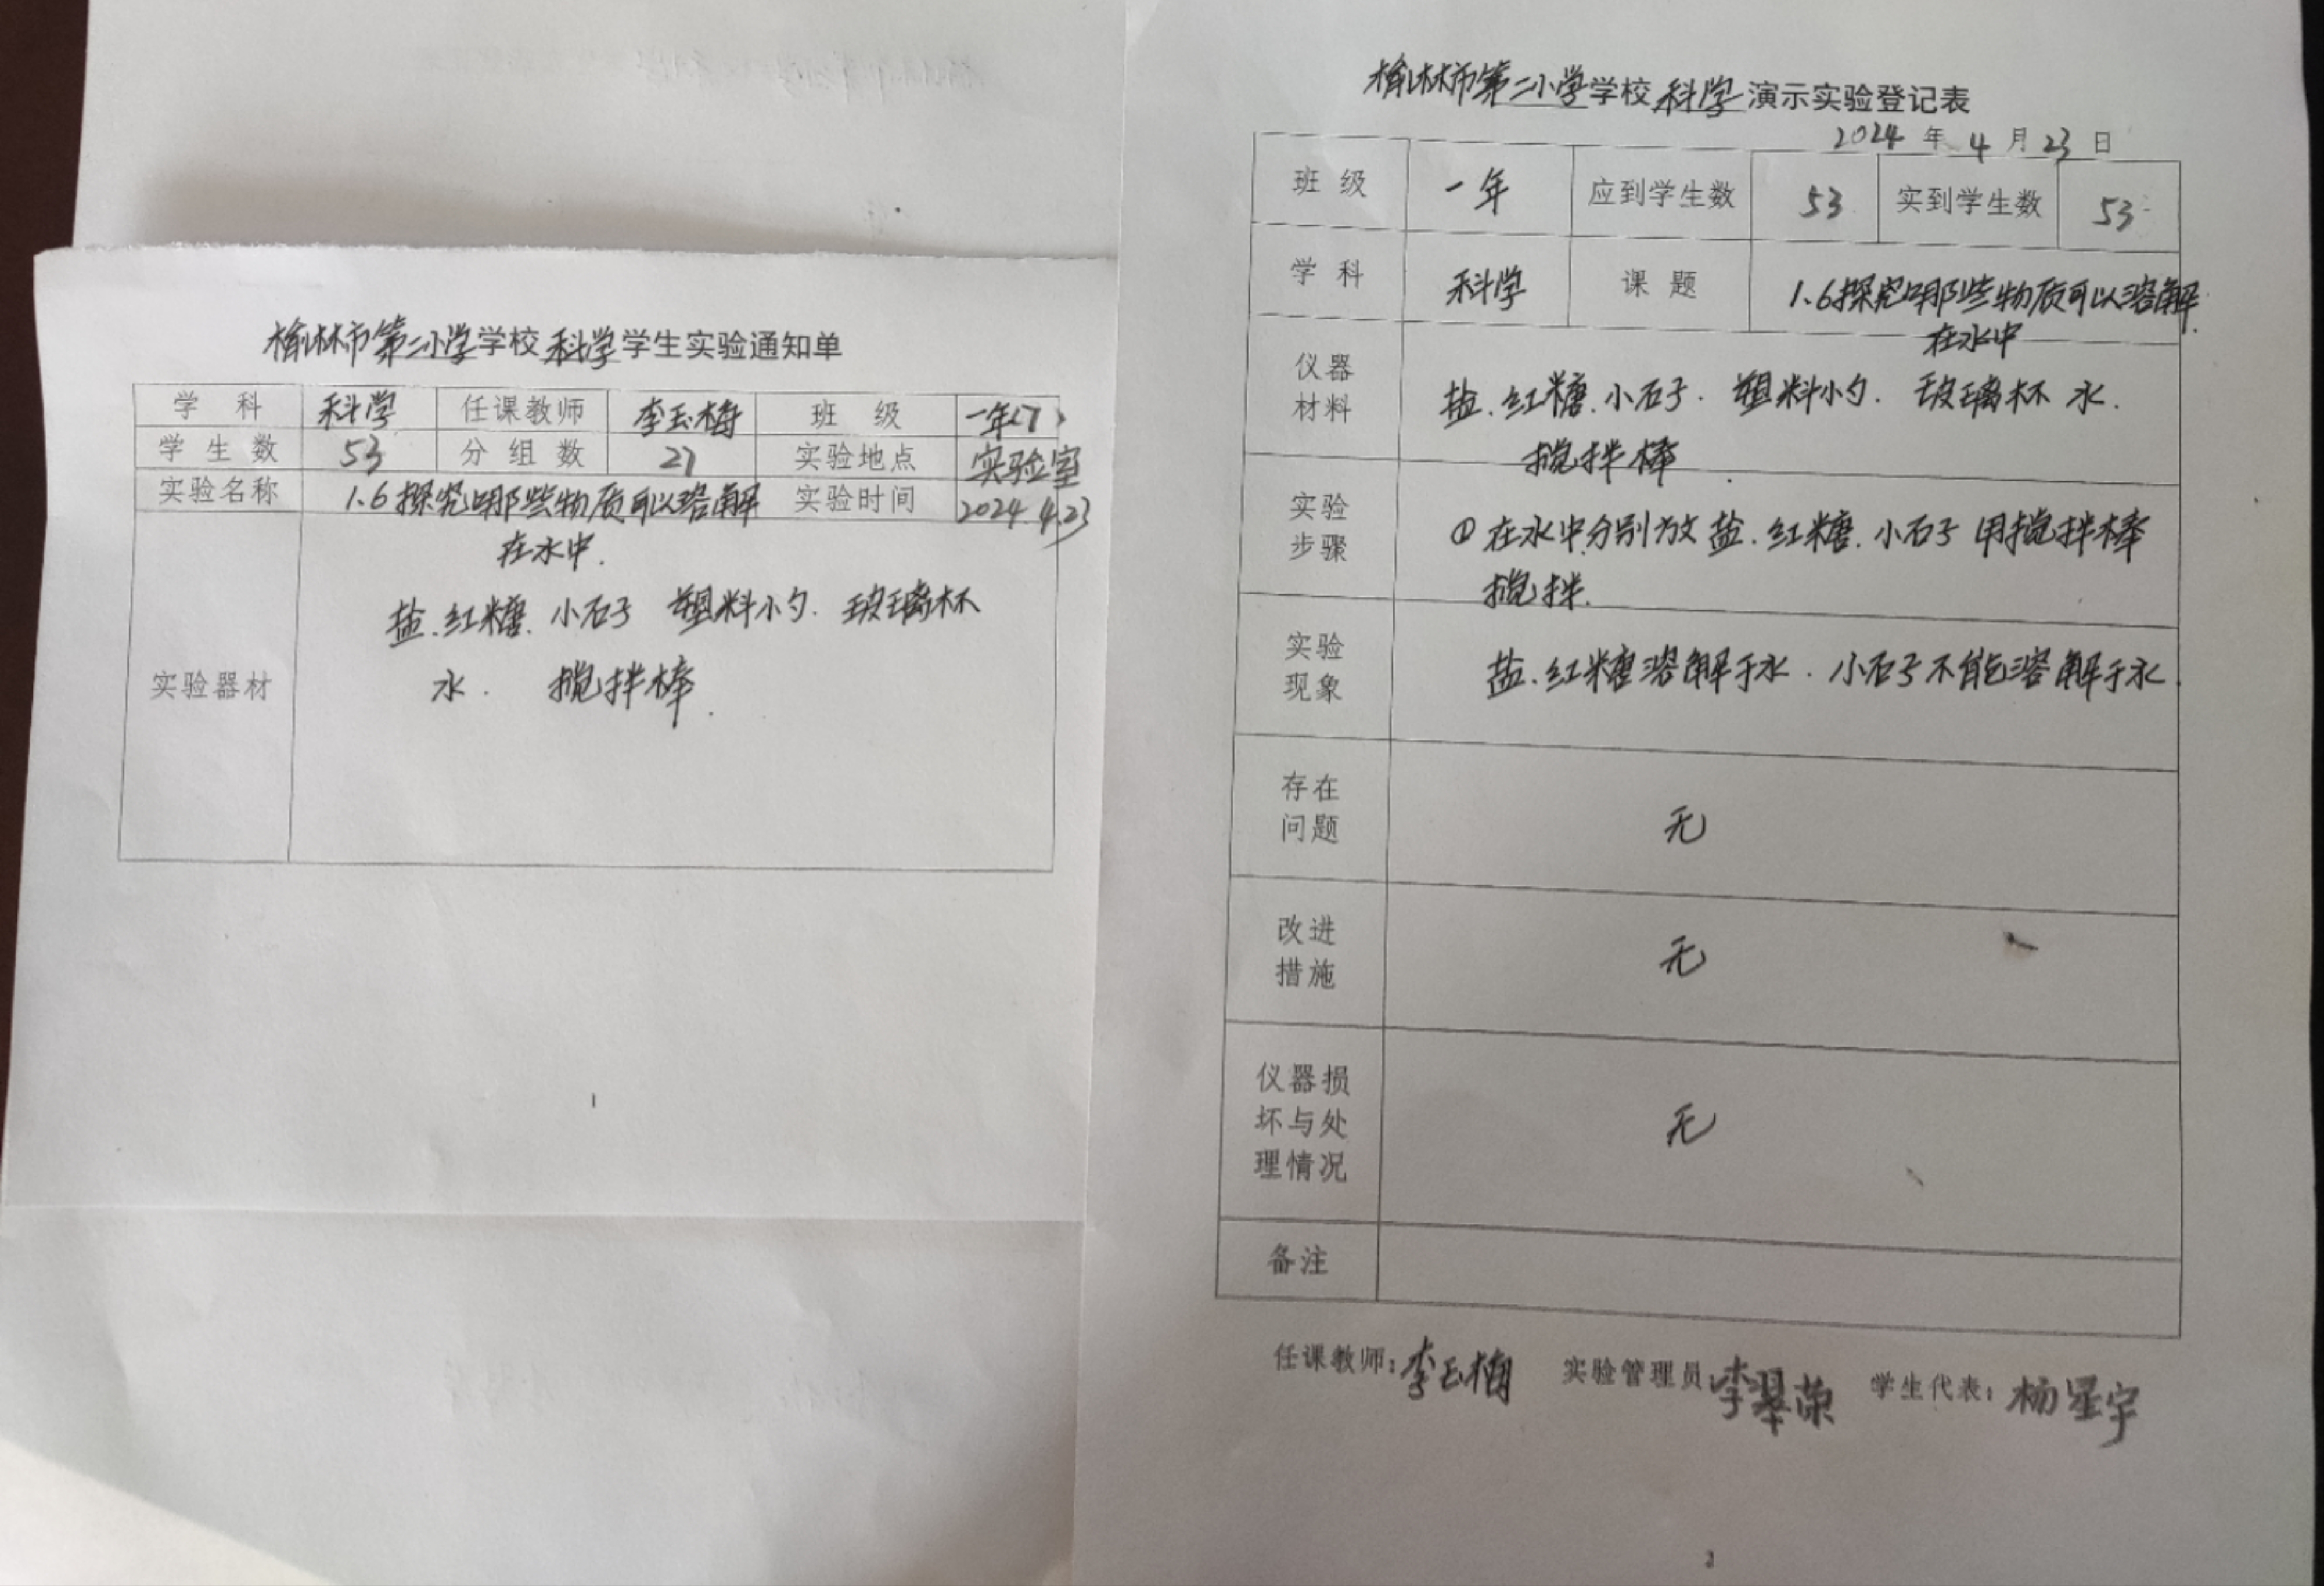 榆林市第二小学学校 科学 学生实验通知单
学 科 科学 任课教师 李玉梅 班 级 一年(7)
学 生 数 53 分 组 数 27 实验地点 实验室
实验名称 1.6探究哪些物质可以溶解 实验时间 2024.4.23
在水中.
实验器材 盐.红糖.小石子 塑料小勺.玻璃杯
水. 搅拌棒.
1
榆林市第二小学学校 科学 演示实验登记表
2024 年 4 月 23 日
班 级 一年 应到学生数 53 实到学生数 53
学 科 科学 课 题 1.6探究哪些物质可以溶解
在水中.
仪器
材料
盐.红糖.小石子.塑料小勺.玻璃杯 水.
搅拌棒.
实验
步骤
①在水中分别放盐.红糖.小石子 用搅拌棒
搅拌.
实验
现象
盐.红糖溶解于水.小石子不能溶解于水.
存在
问题
无
改进
措施
无
仪器损
坏与处
理情况
无
备注
任课教师:李玉梅 实验管理员:李翠荣 学生代表:杨星宇
2